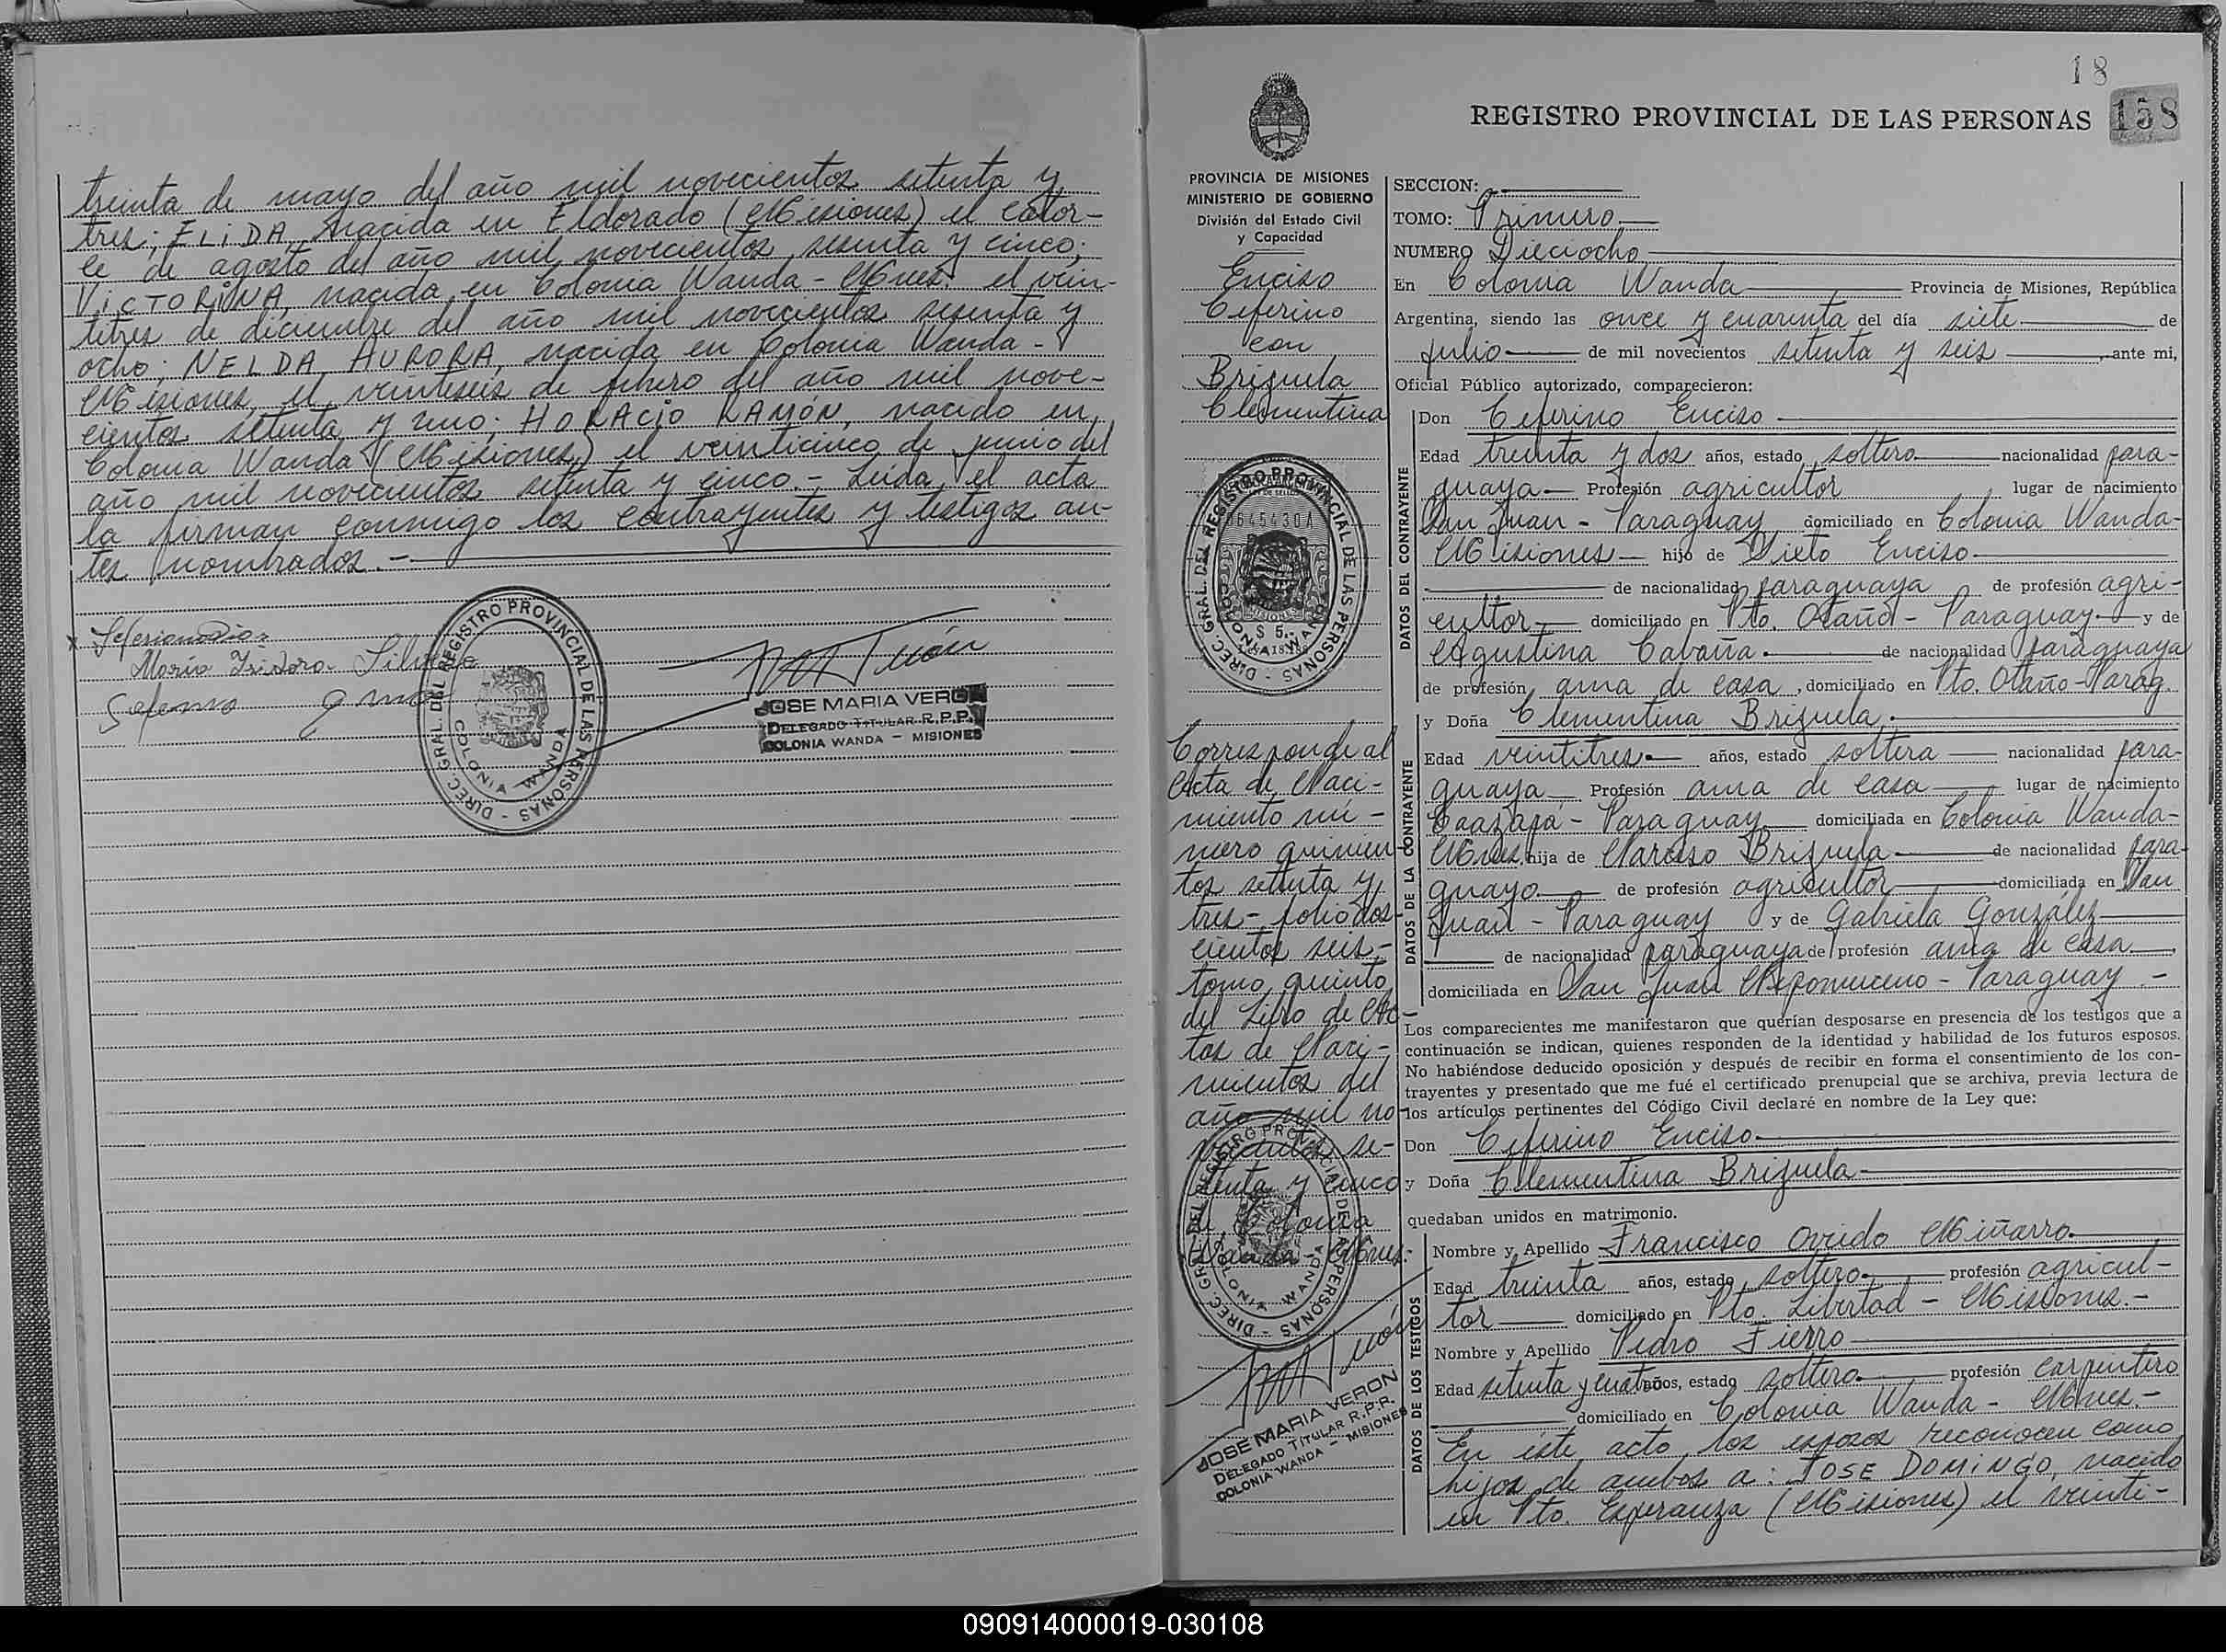 treinta de mayo del año mil novecientos setenta y
tres; ELIDA, nacida en Eldorado (Misiones) el cator-
ce de agosto del año mil novecientos sesenta y cinco;
VICTORINA, nacida en Colonia Wanda - Mnes. el vein-
titres de diciembre del año mil novecientos sesenta y
ocho; NELDA AURORA, nacida en Colonia Wanda -
Misiones, el veintiseis de febrero del año mil nove-
cientos setenta y uno; HORACIO RAMÓN, nacido en
Colonia Wanda (Misiones) el veinticinco de junio del
año mil novecientos setenta y cinco.- Leida el acta
la firman conmigo los contrayentes y testigos an-
tes nombrados.-
María Isidora Silvera
DIREC. GRAL. DEL REGISTRO PROVINCIAL DE LAS PERSONAS
COLONIA WANDA
JOSE MARIA VERON
DELEGADO TITULAR R.P.P.
COLONIA WANDA - MISIONES
18
REGISTRO PROVINCIAL DE LAS PERSONAS 158
PROVINCIA DE MISIONES
MINISTERIO DE GOBIERNO
División del Estado Civil
y Capacidad
Enciso
Ceferino
con
Brizuela
Clementina
0645430A
$ 5.-
DIREC. GRAL. DEL REGISTRO PROVINCIAL DE LAS PERSONAS
COLONIA WANDA
Corresponde al
Acta de Naci-
miento nú-
mero quinien
tos setenta y
tres - folio dos-
cientos seis -
tomo quinto
del Libro de Ac-
tas de Naci-
mientos del
año mil no-
vecientos se-
tenta y cinco
de Colonia
Wanda - Mnes:
DIREC. GRAL. DEL REGISTRO PROVINCIAL DE LAS PERSONAS
COLONIA WANDA
JOSE MARIA VERON
DELEGADO TITULAR R.P.P.
COLONIA WANDA - MISIONES
SECCION:
TOMO: Primero
NUMERO Dieciocho
En Colonia Wanda Provincia de Misiones, República
Argentina, siendo las once y cuarenta del día siete de
julio de mil novecientos setenta y seis, ante mi,
Oficial Público autorizado, comparecieron:
DATOS DEL CONTRAYENTE
Don Ceferino Enciso
Edad treinta y dos años, estado soltero nacionalidad para-
guaya Profesión agricultor lugar de nacimiento
San Juan - Paraguay domiciliado en Colonia Wanda-
Misiones hijo de Enciso
de nacionalidad paraguaya de profesión agri-
cultor domiciliado en Pto. Otaño - Paraguay y de
Agustina Cabaña de nacionalidad paraguaya
de profesión ama de casa, domiciliado en Pto. Otaño - Parag.
DATOS DE LA CONTRAYENTE
y Doña Clementina Brizuela
Edad veintitres años, estado soltera nacionalidad para-
guaya Profesión ama de casa lugar de nacimiento
Caazapá - Paraguay domiciliada en Colonia Wanda-
Mnes. hija de Narciso Brizuela de nacionalidad para-
guayo de profesión agricultor domiciliada en San
Juan - Paraguay y de Gabriela González
de nacionalidad paraguaya de profesión ama de casa
domiciliada en San Juan Nepomuceno - Paraguay -
Los comparecientes me manifestaron que querían desposarse en presencia de los testigos que a
continuación se indican, quienes responden de la identidad y habilidad de los futuros esposos.
No habiéndose deducido oposición y después de recibir en forma el consentimiento de los con-
trayentes y presentado que me fué el certificado prenupcial que se archiva, previa lectura de
los artículos pertinentes del Código Civil declaré en nombre de la Ley que:
Don Ceferino Enciso
y Doña Clementina Brizuela
quedaban unidos en matrimonio.
DATOS DE LOS TESTIGOS
Nombre y Apellido Francisco Ovido Miñarro
Edad treinta años, estado soltero profesión agricul-
tor domiciliado en Pto. Libertad - Misiones.-
Nombre y Apellido Pedro Fierro
Edad setenta y cuatro años, estado soltero profesión carpintero
domiciliado en Colonia Wanda - Mnes.-
En éste acto los esposos reconocen como
hijos de ambos a: JOSE DOMINGO, nacido
en Pto. Esperanza (Misiones) el veinti-
090914000019-030108